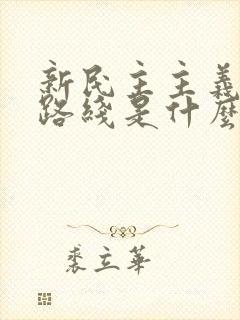 新民主主義
路綫是什麽
裘立華